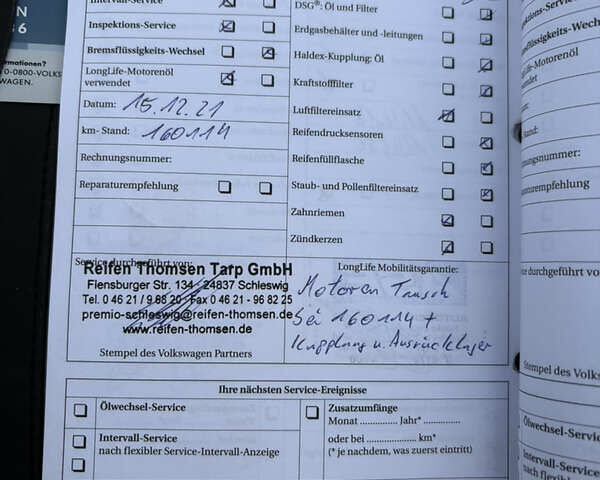 N
6
rmationen?
0-0800-VOLKS
WAGEN.
Intervall-Service
Inspektions-Service
Bremsflüssigkeits-Wechsel
LongLife-Motorenöl
verwendet
Datum: 15.12.21
km- Stand: 160114
Rechnungsnummer:
Reparaturempfehlung
DSG®: Öl und Filter
Erdgasbehälter und -leitungen
Haldex-Kupplung: Öl
Kraftstofffilter
Luftfiltereinsatz
Reifendrucksensoren
Reifenfüllflasche
Staub- und Pollenfiltereinsatz
Zahnriemen
Zündkerzen
Service durchgeführt von:
Reifen Thomsen Tarp GmbH
Flensburger Str. 134 · 24837 Schleswig
Tel. 0 46 21 / 9 68 20 · Fax 0 46 21 - 96 82 25
premio-schleswig@reifen-thomsen.de
www.reifen-thomsen.de
Stempel des Volkswagen Partners
LongLife Mobilitätsgarantie:
Motoren Tausch
bei 160114 +
Kupplung u. Ausrücklager
Ihre nächsten Service-Ereignisse
Ölwechsel-Service
Intervall-Service
nach flexibler Service-Intervall-Anzeige
Zusatzumfänge
Monat .............. Jahr* ..............
oder bei .................. km*
(* je nachdem, was zuerst eintritt)
ktions-Service
sflüssigkeits-Wechsel
Life-Motorenöl
ndet
m:
Stand:
hnungsnummer:
araturempfehlung
ce durchgeführt vo
Stempel des Volks
Ölwechsel-Servic
Intervall-Service
nach flexibl